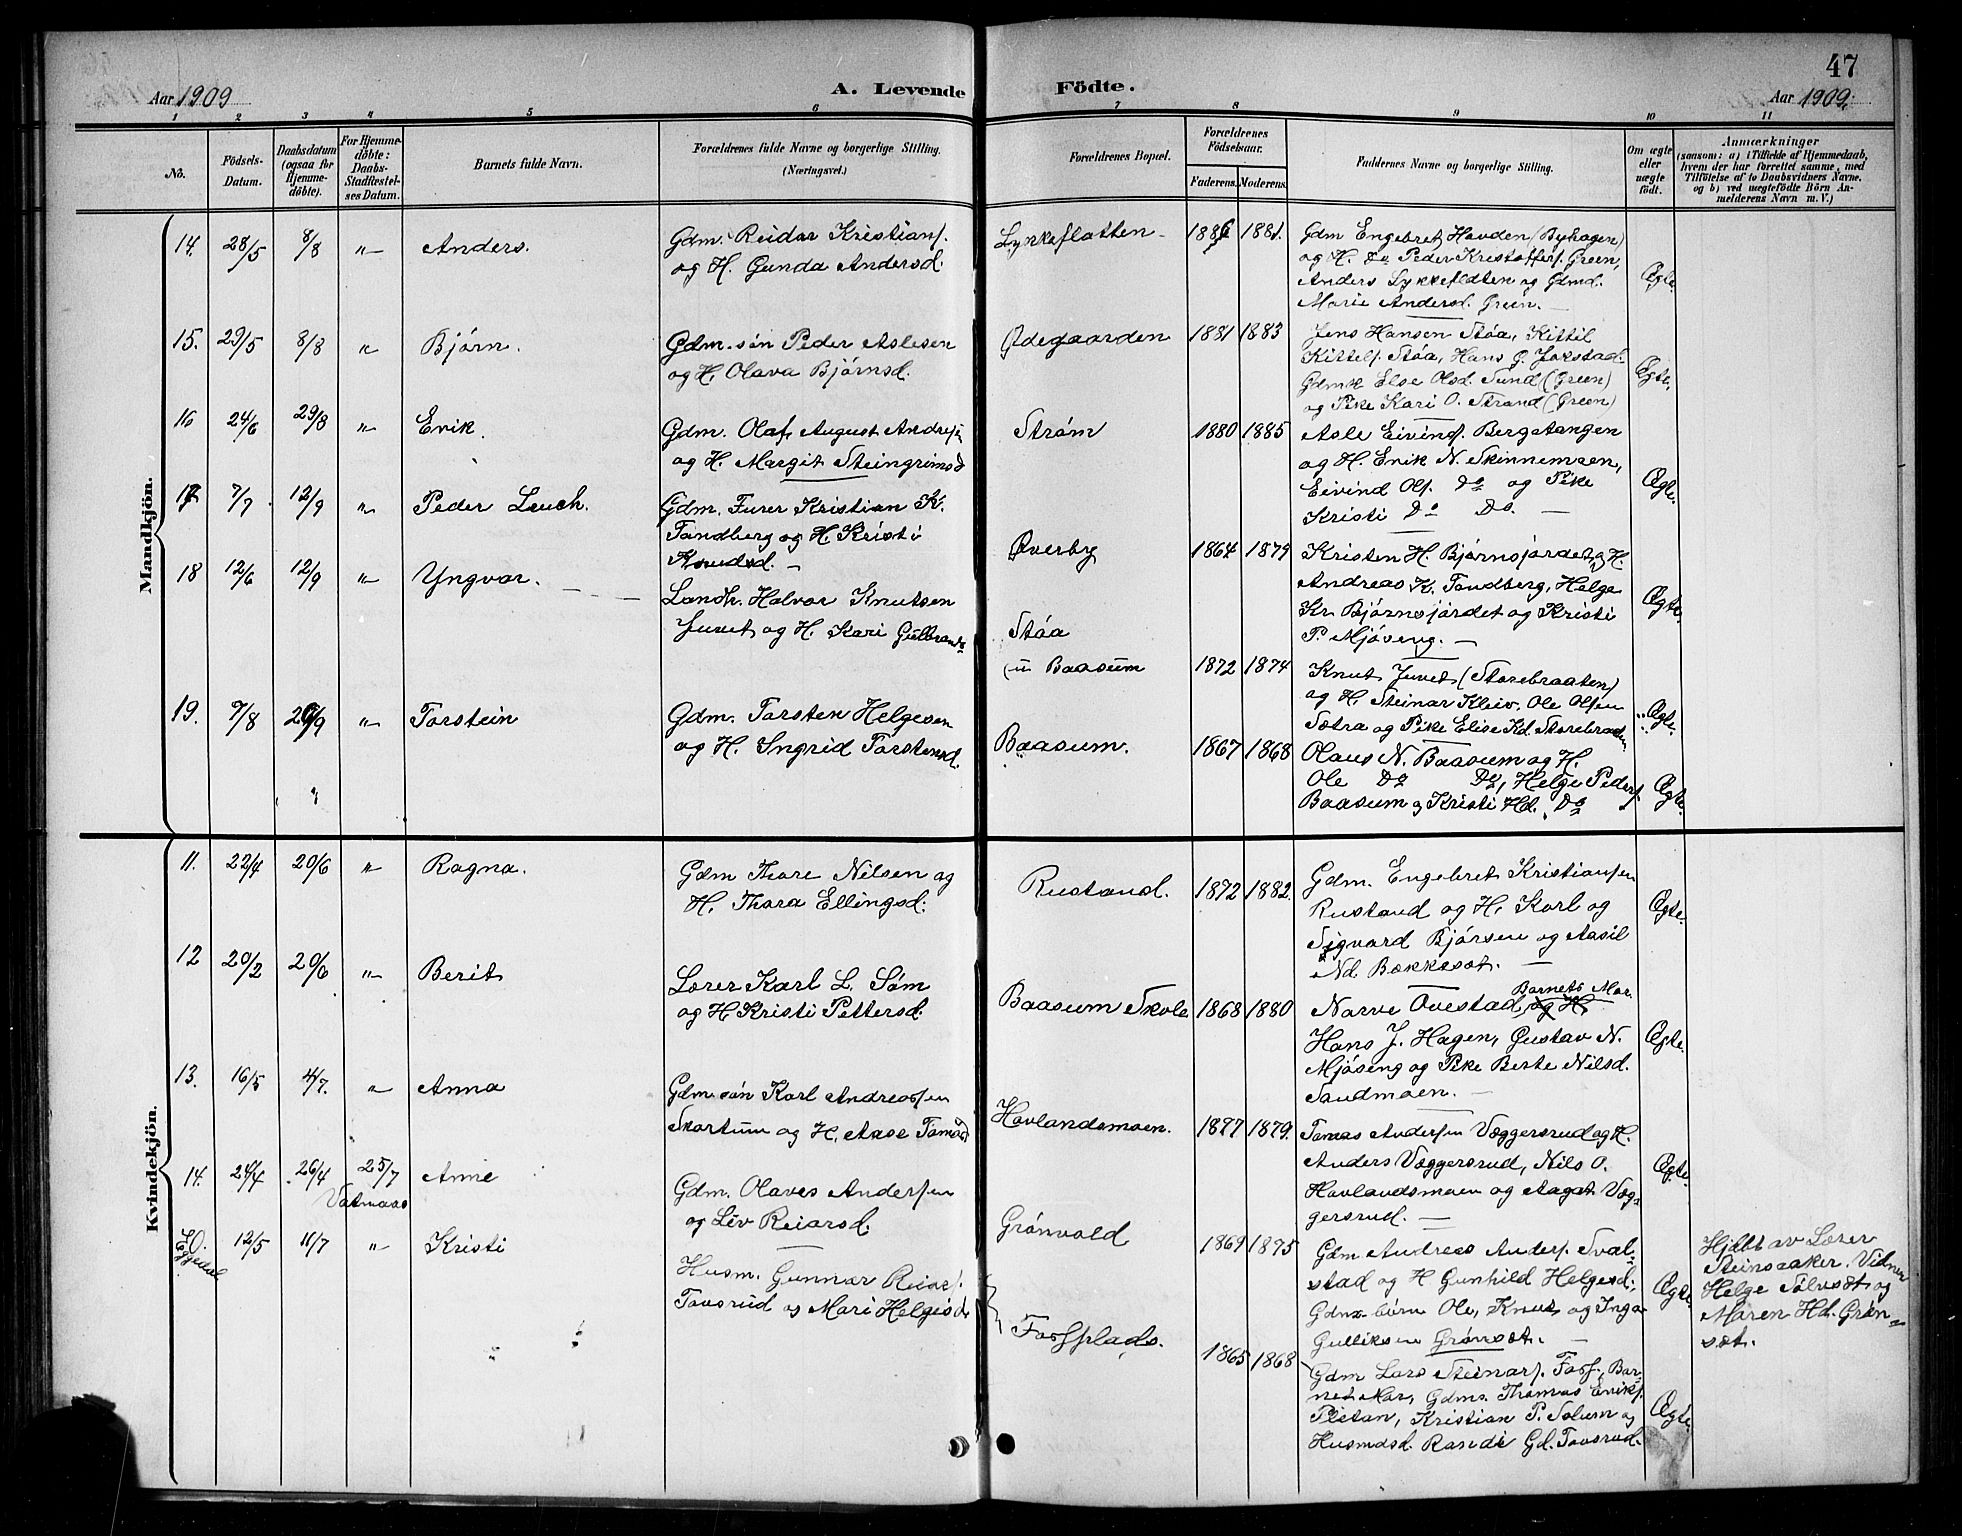 47
Aar 1909
A. Levende Födte.
Aar 1909.
1 2 3 4 5 6 7 8 9 10 11
No.
Födsels-
Datum.
Daabsdatum
(ogsaa for
Hjemme-
døbte).
For Hjemme-
døbte:
Daabs-
Stadfæstel-
ses Datum.
Barnets fulde Navn.
Forældrenes fulde Navne og borgerlige Stilling.
(Næringsvei.)
Forældrenes Bopæl.
Forældrenes
Födselsaar.
Faderens. Moderens.
Faddernes Navne og borgerlige Stilling.
Om ægte
eller
uægte
födt.
Anmærkninger
(saasom: a) i Tilfælde af Hjemmedaab,
hvem der har forrettet samme, med
Tilföielse af to Daabsvidners Navne.
og b) ved uægtefödte Börn An-
melderens Navn m. V.)
Mandkjön.
14. 28/5 8/8 " Anders.
Gdm. Reidar Kristians.
og H. Gunda Andersd.
Lykkeflatten 1886 1881.
Gdm Engebret Hovden (Byhagen)
og H. Do Peder Kristoffers. Green,
Anders Lykkeflatten og Gdmd.
Marie Andersd. Green. —
Ægte.
15. 29/5 8/8 " Bjørn.
Gdm. søn Peder Aslesen
og H. Olava Bjørnsd.
Ødegaarden 1881 1883
Jens Hansen Støa, Kittil
Kittels. Støa, Hans G. Jokstad.
Gdmk Else Olsd. Sund (Green)
og Pike Kari O. Strand (Green)
Ægte.
16 24/6 29/8 " Erik.
Gdm. Olaf August Andresen
og H. Margit Steingrimsd
Strøm 1880 1885
Asle Eivins. Bergstangen
og H. Erik N. Skinnemoen,
Eivind Ols. Do og Pike
Kristi Do Do. —
Ægte.
17 7/7 12/9 " Peder Leuch.
Gdm. Furer Kristian K.
Tandberg og H. Kristi
Knudsd. —
Øverby 1864 1879
Kristen H. Bjørnsjordet og H.
Andreas K. Tandberg, Helge
Kr. Bjørnsjordet og Kristi
P. Mjøveng. —
Ægte.
18 12/6 12/9 " Yngvar.
Landh. Halvor Knutsen
Juvet og H. Kari Gulbrands
Støa
(u Baasum 1872 1874
Knut Juvet (Storebraaten)
og H. Steinar Kleiv. Ole Olsen
Sætra og Pike Elise Kd. Storebraaten
Ægte.
19. 7/8 26/9 " Torstein
Gdm. Torsten Helgesen
og H. Ingrid Torstensd.
Baasum. 1867 1868
Olaus N. Baasum og H.
Ole Do Do, Helge Peders.
Baasum og Kristi Hd. Do
Ægte.
Kvindekjön.
11. 22/4 20/6 " Ragna.
Gdm Thore Nilsen og
H. Thora Ellingsd.
Rustand. 1872 1882.
Gdm. Engebret Kristiansen
Rustand og H. Karl og
Sigvard Bjørsen og Aasil
Nd. Bækkesæt. —
Ægte.
12 20/2 20/6 " Berit
Lærer Karl L. Søm
og H Kristi Pettersd.
Baasum Skole 1868 1880
Narve Ovestad, og H. Barnets Mor.
Hans J. Hagen, Gustav N.
Mjøseng og Pike Berte Nilsd.
Sandmoen. —
Ægte.
13. 16/5 4/7. " Anna
Gdm. søn Karl Andreassen
Skartum og H. Anse Tomasd
Hovlandsmoen. 1877 1879.
Tomas Andersen Væggersrud og H.
Anders Væggersrud, Nils O.
Hovlandsmoen og Aagot Væg-
gersrud. —
Ægte.
14. 24/4 26/4 25/7 Anne
Vatnaas
Gdm. Olaves Andersen
og Liv Reiarsd.
Grønvold 1869 1875
Gdm Andreas Anders. Sval-
stad og H Gunhild Helgesd.
Gdm.børn Ole, Knut og Inga
Gulliksen Grønsæt. —
Ægte.
Hjdbt av Lærer
Steinsaaker. Vidner
Helge Sølvsæt og
Maren Hd. Grøn-
sæt.
Eggedal 12/5 11/7 " Kristi
Husm. Gunnar Reiars.
Tovsrud og Mari Helgesd
Fossplads. 1865 1868
Gdm Lars Steinars. Foss, Bar-
nets Mor, Gdms. Thomas Eriks.
Plstan, Kristian P. Solum og
Husmdsd. Randi Gd. Tovsrud.
Ægte.